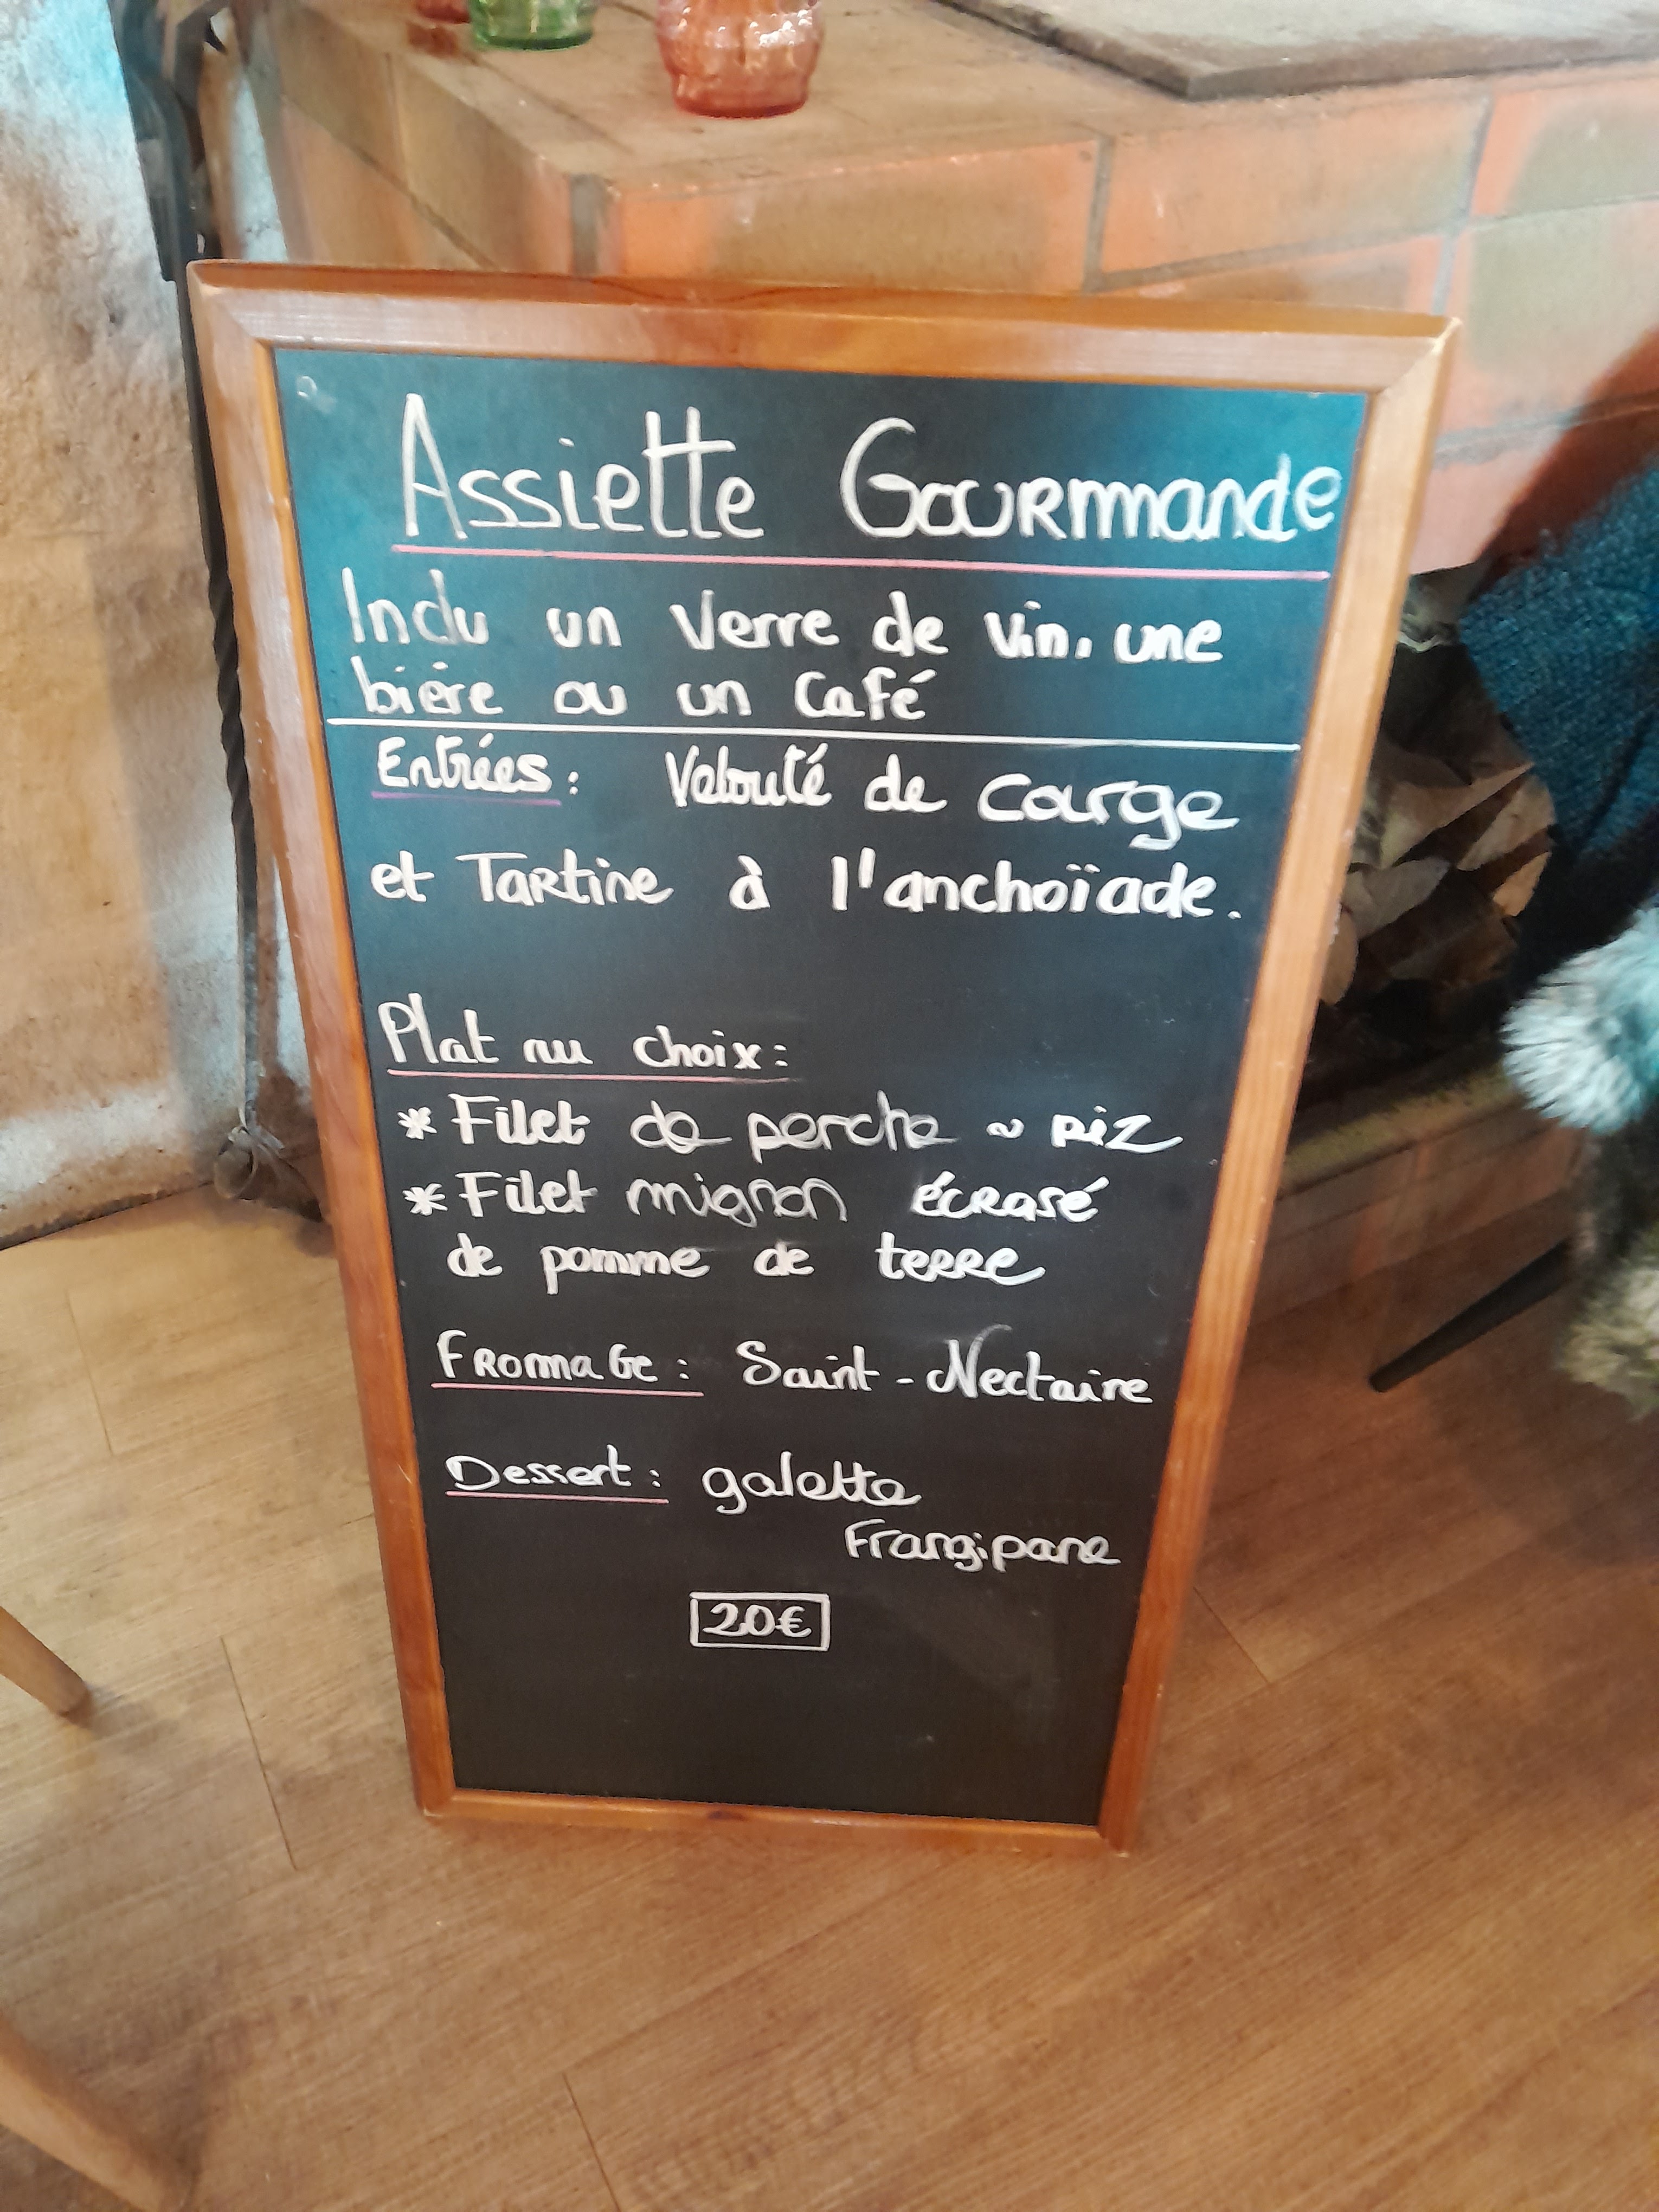 Assiette Gourmande
Inclu un verre de vin, une
bière ou un café
Entrées : Velouté de courge
et Tartine à l'anchoïade.
Plat au choix :
* Filet de perche ~ riz
* Filet mignon écrasé
de pomme de terre
Fromage : Saint-Nectaire
Dessert : galette
Frangipane
20€